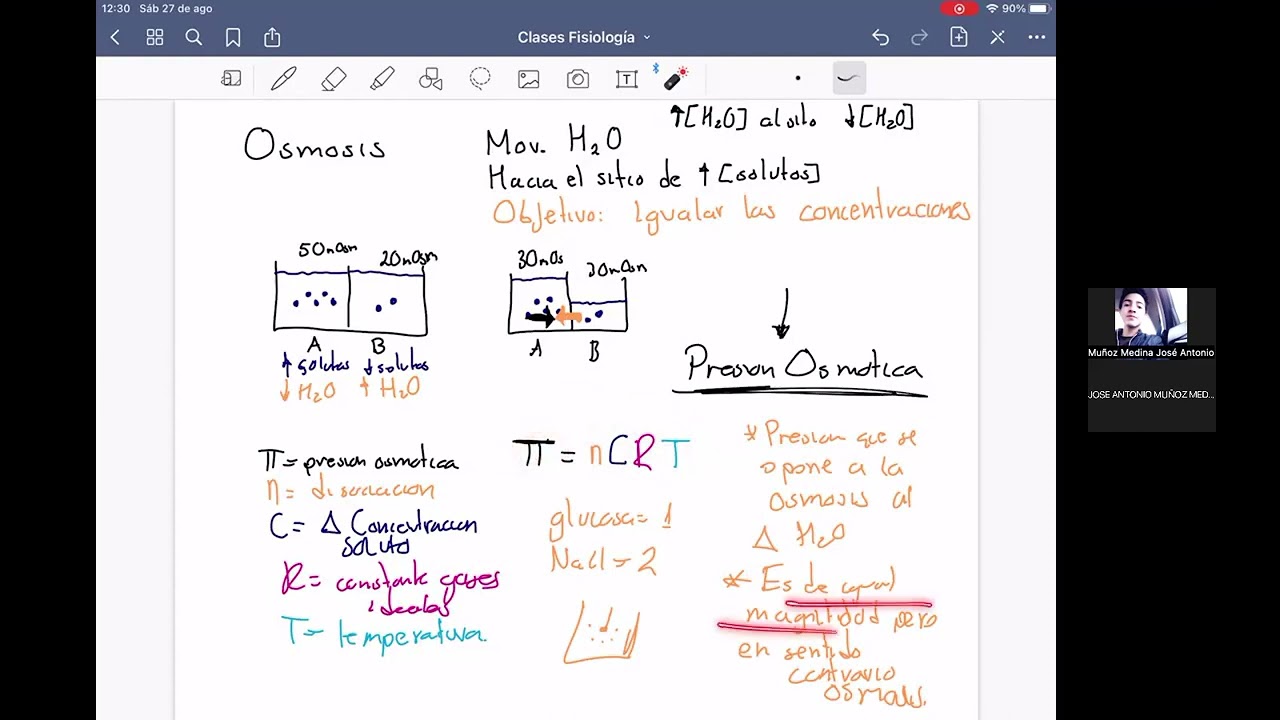 12:30 Sáb 27 de ago
90%
Clases Fisiología
Osmosis
Mov. H2O
Hacia el sitio de ↑ [solutos]
↑[H2O] al sito ↓[H2O]
Objetivo: Igualar las concentraciones
50mOsm
20mOsm
A B
↑ solutos ↓ solutos
↓ H2O ↑ H2O
30mOs
30mOsm
A B
Presion Osmotica
π = nCRT
π = presion osmotica
n = disociacion
C = Δ Concentracion
soluto
R = constante gases
ideales
T = temperatura.
glucosa = 1
NaCl = 2
* Presion que se
opone a la
osmosis al
Δ H2O
* Es de igual
magnitud pero
en sentido
contrario
osmosis.
Muñoz Medina José Antonio
JOSE ANTONIO MUÑOZ MED...